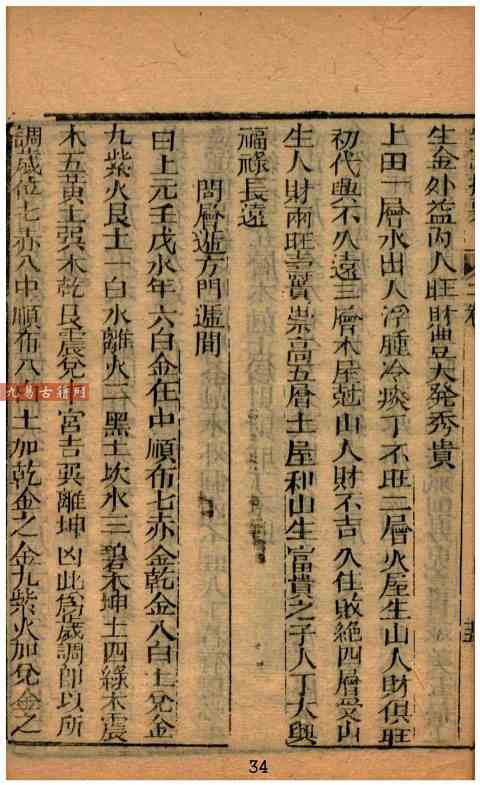 生金外益內人旺財豐大發秀貴
上田一層水出人浮腫冷痰丁不旺二層火屋生山人財俱旺
初代興不久遠三層木屋剋山人財不吉久住敗絕四層受山
生人財兩旺富貴崇高五層土屋和山生富貴之子人丁大興
福祿長遠
問層遊方門遞間
曰上元壬戊水年六白金在中順布七赤金乾金八白土兌金
九紫火艮土一白水離火二黑土坎水三碧木坤土四綠木震
木五黃土巽木乾艮震兌中宮吉巽離坤凶此爲歲調即以所
調歲位七赤入中順布八白土加乾金之金九紫火加兌金之
九易古籍網
34